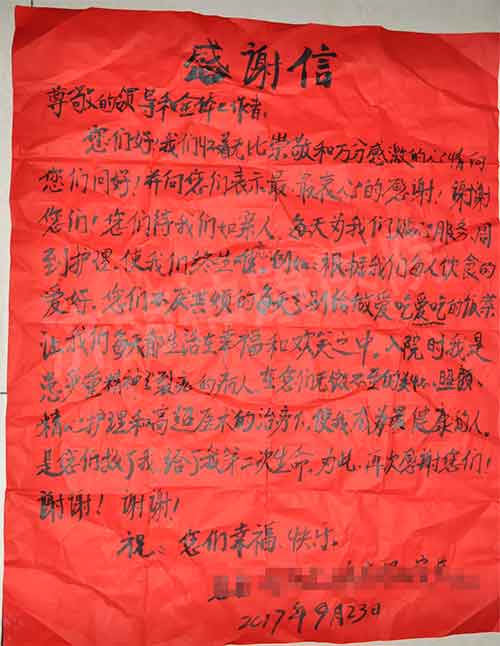 感谢信
尊敬的领导和全体工作者:
您们好!我们怀着无比崇敬和万分感激的心情向
您们问好!并向您们表示最最衷心的感谢!谢谢
您们!您们待我们如亲人,每天为我们服务,周
到护理,使我们终生难。例如:根据我们每人饮食的
爱好,您们不厌其烦的每天分别给做爱吃爱吃的饭菜
让我们每天都生活在幸福和欢笑之中。入院时我是
患严重精神分裂症的病人在您们无微不至的关怀、照顾、
精心护理和高超医术的治疗下,使我成为最健康的人。
是您们救了我,给了我第二次生命,为此,再次感谢您们!
谢谢!谢谢!
祝:您们幸福、快乐。
2017年9月23日